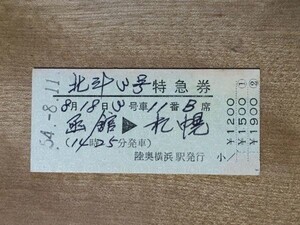 54.-8.11
北斗3号特急券
8月18日3号車11番B席
函館▶札幌
(14時25分発車)
陸奥横浜駅発行 小
① ②
1200 1500 1900